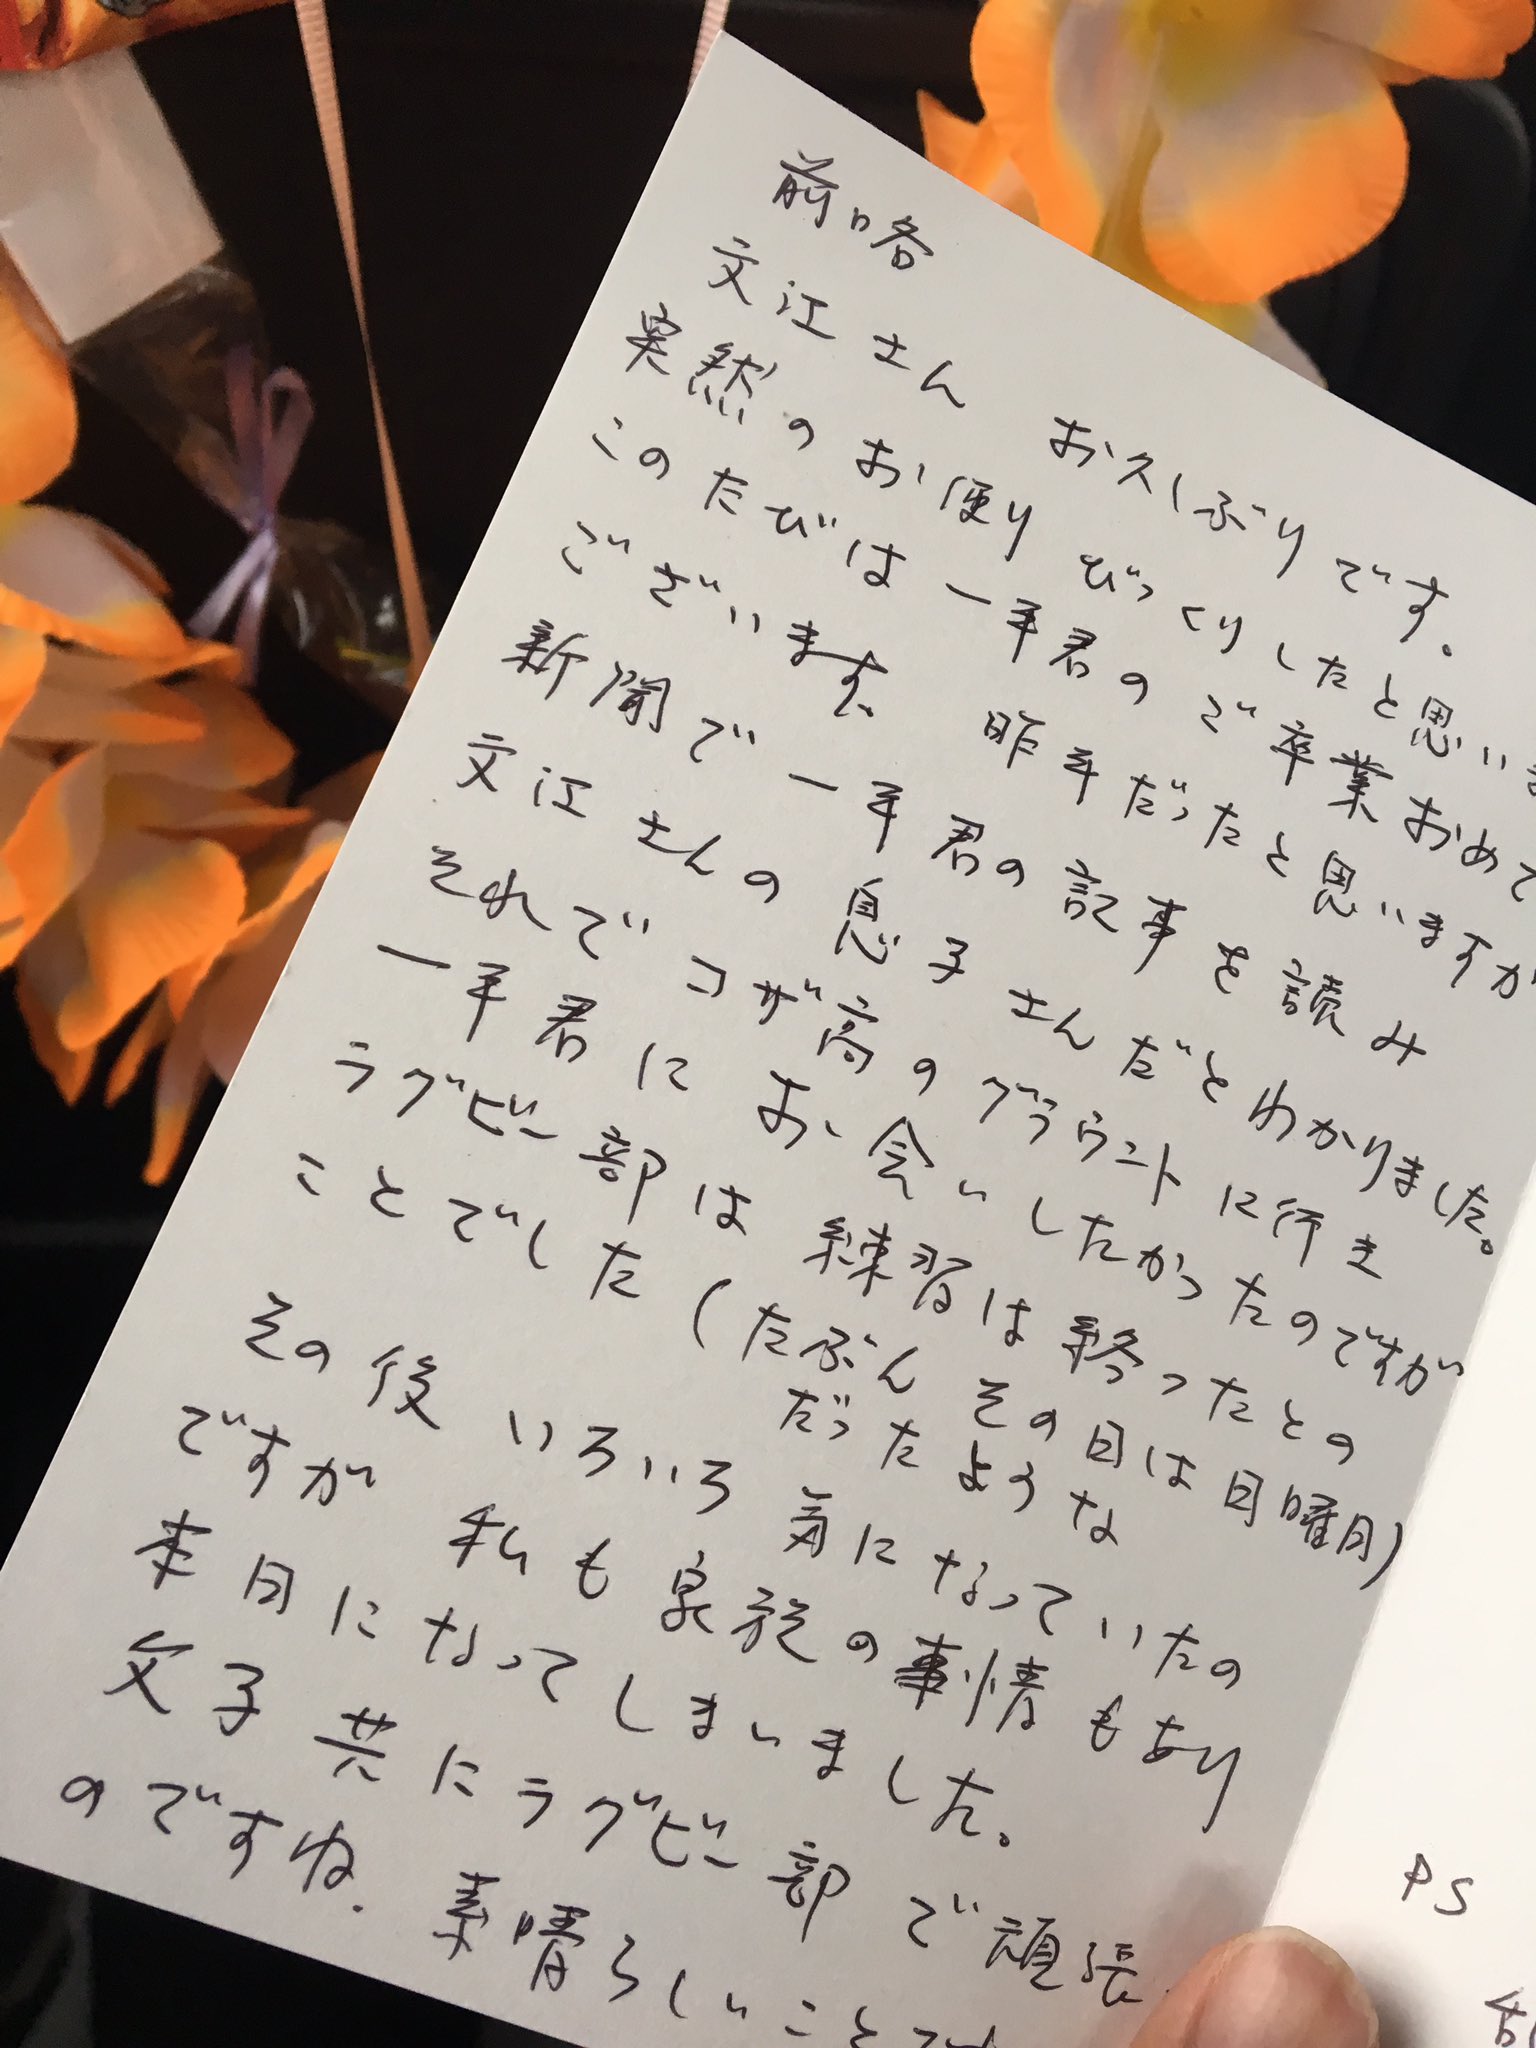 前略
文江さん お久しぶりです。
突然のお便りびっくりしたと思いま
このたびは一平君のご卒業おめで
ございます。昨年だったと思いますが
新聞で一平君の記事を読み
文江さんの息子さんだとわかりました。
それでコザ高のグラウントに行き
一平君にお会いしたかったのですが
ラグビー部は練習は終ったとの
ことでした(たぶんその日は日曜日)
だったような
その後いろいろ気になっていたの
ですが 私も家族の事情もあり
来日になってしまいました。
父子共にラグビー部で頑張
のですね。素晴らしいことです
PS